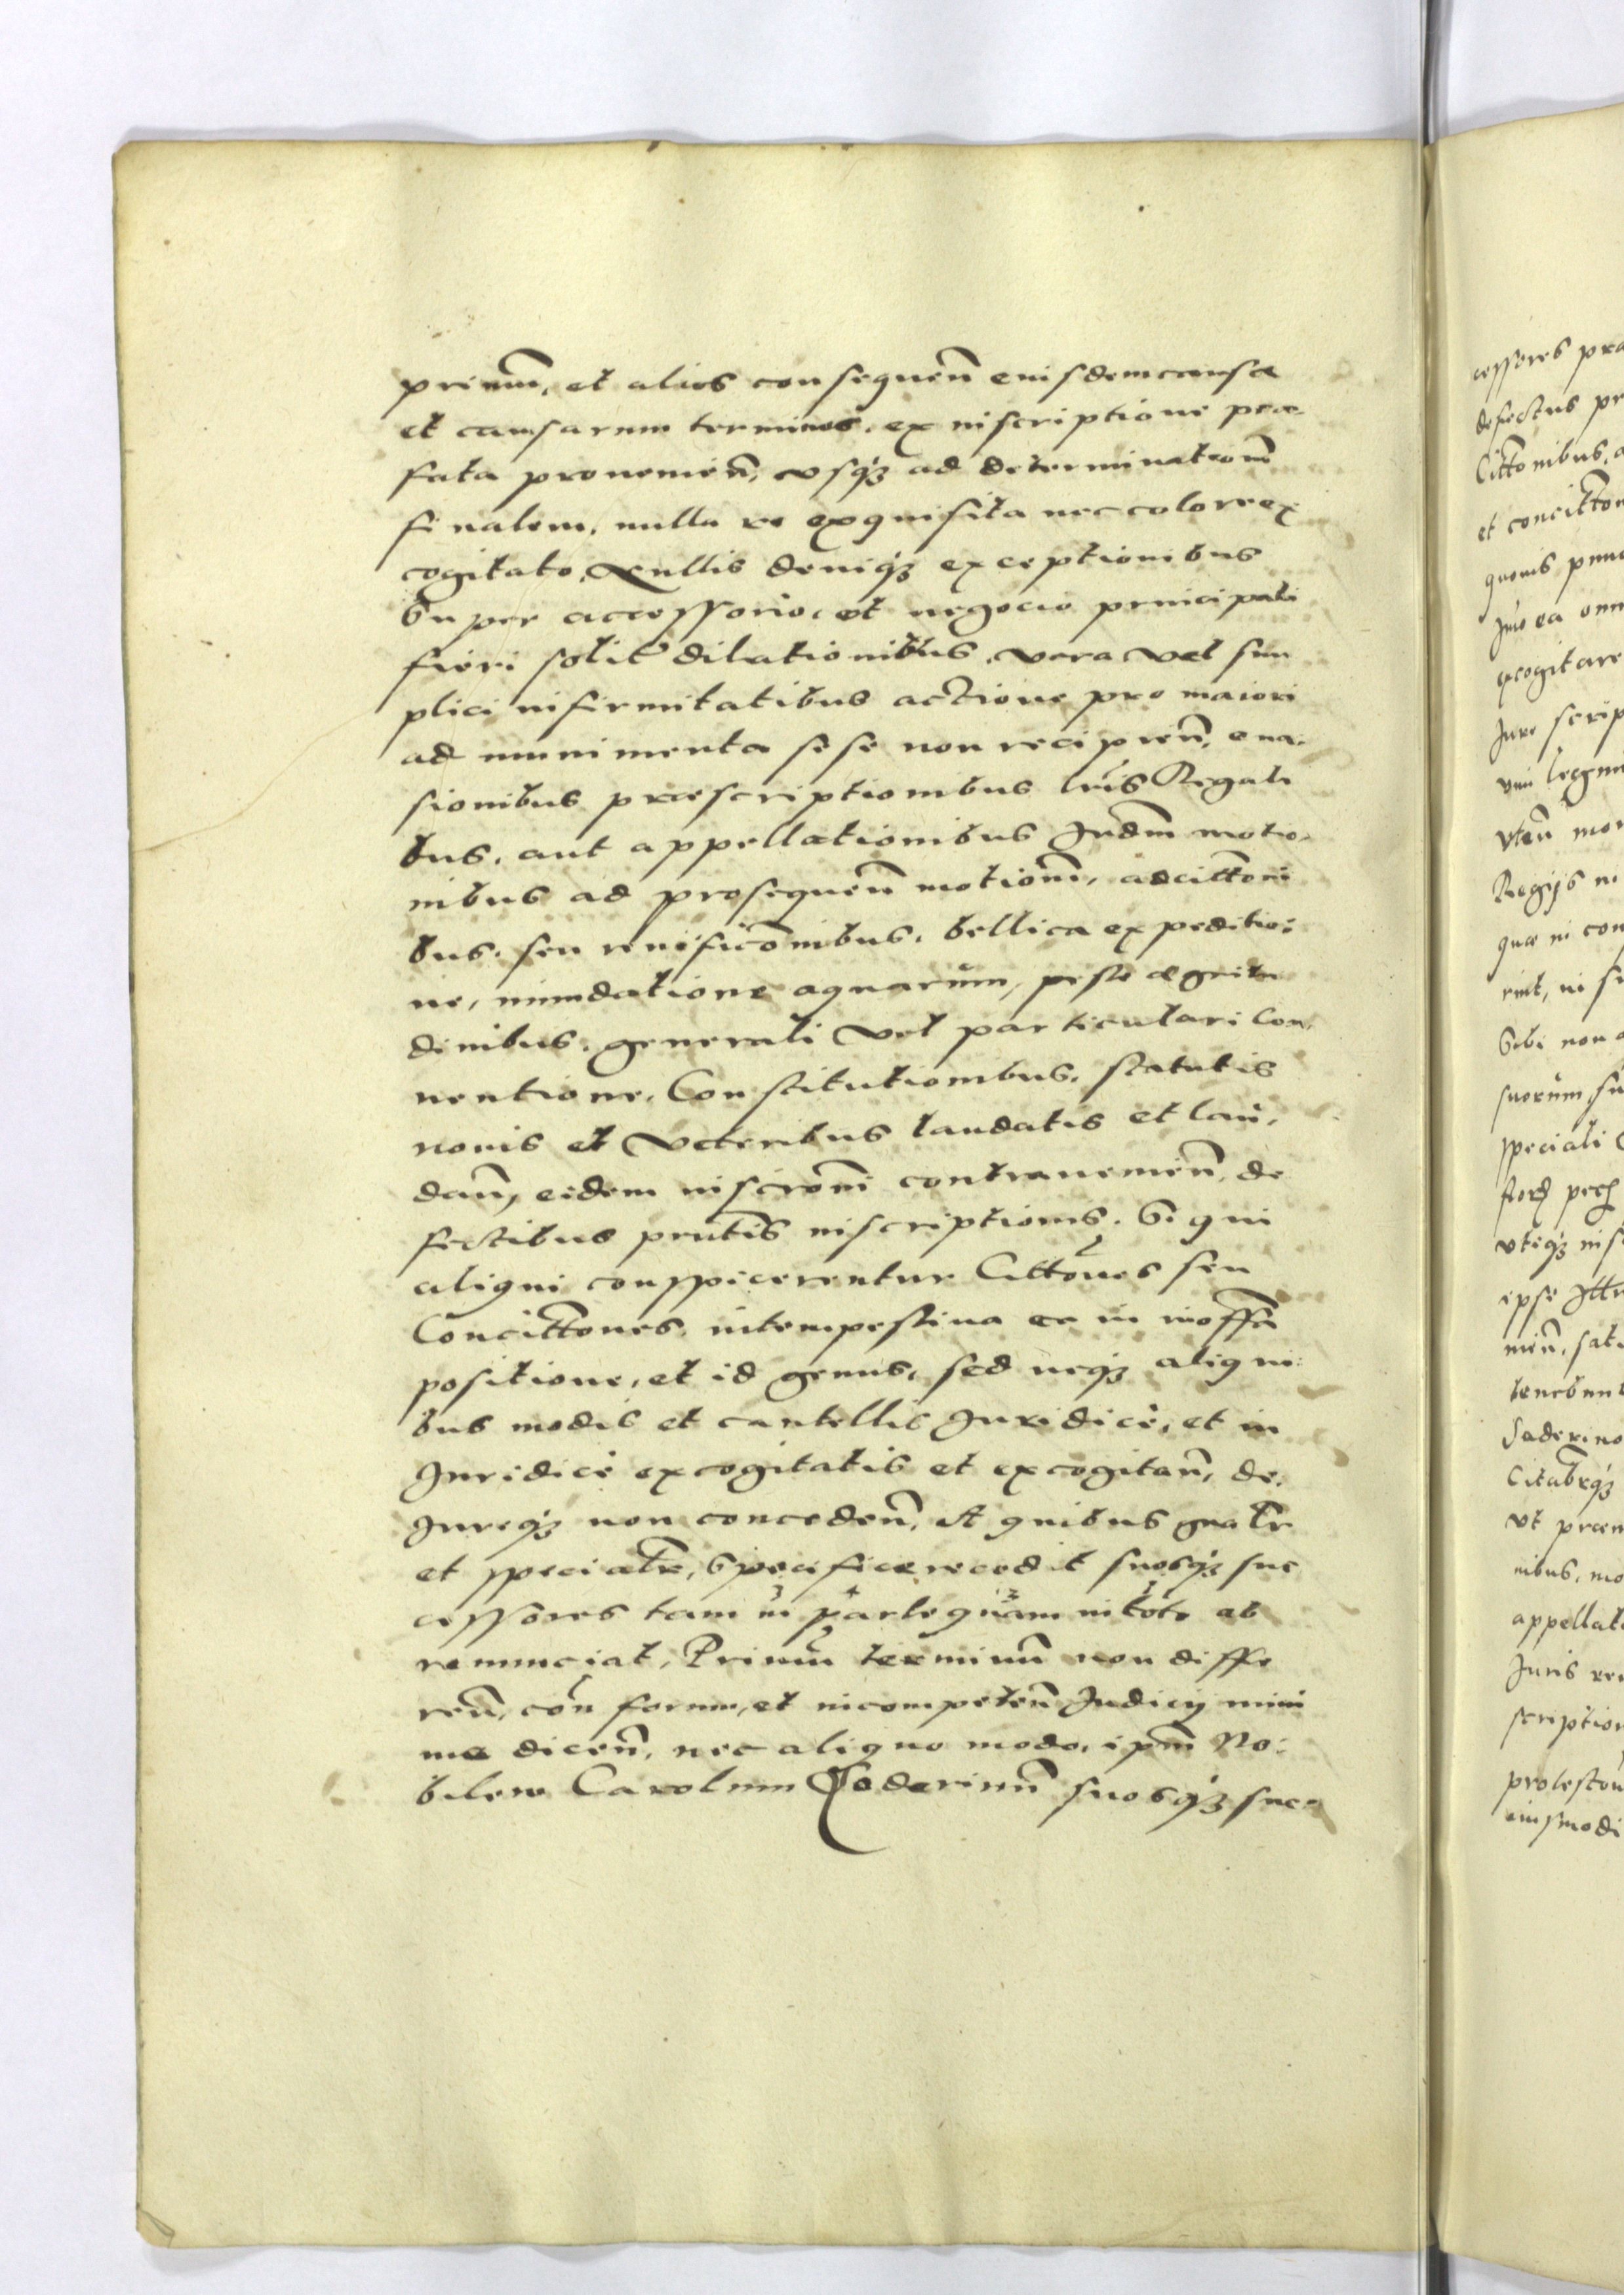 primum, et alios consequen̄ eiusdem causæ
et causarum terminos, ex inscriptione præ-
fata prouenien̄, vsq₃ ad determinationē
finalem, nulla re exquisita nec colore ex
cogitato, Nullis deniq₃ exceptionibus
super accessorio, et negocio principali
fieri solit dilationibus, vera vel sim
plici infirmitatibus actione pro maiori
ad munimenta sese non recipien̄, eua-
sionibus præscriptionibus lr̄is Regali
bus, aut appellationibus Iudm̄ motio-
nibus ad prosequen̄ motionē, adcitt̄oni
bus, seu reuificōnibus, bellica expeditio-
ne, inundatione aquarum, peste ægritu
dinibus, generali vel particulari Con-
uentione, Constitutionibus, statutis
nouis et veteribus laudatis et lau-
dan̄, eidem inscrōni contrauenien̄, de
fectibus pn̄tis inscriptionis, si qui
aliqui conspicerentur Citt̄ones seu
Concitt̄ones, intempestiua ea in
positione, et id genus, sed neq₃ aliqui-
bus modis et cautellis Iuridicè, et in
Iuridicè excogitatis et excogitan̄, de
Iureq₃ non conceden̄, A quibus gnalr̄
et specialr̄, specifice recedit suosq₃ suc
cessores tam in parte quam in toto ab
renunciat, Primū terminū non diffe
ren̄, con̄ forum, et incompeten̄ Iudicij mini
me dicen̄, nec aliquo modo, ipm̄ No-
bilem Carolum Saderinū suosq₃ suc-
cessores præ
defectus pr
Citt̄onibus, a
et concitt̄on
quouis
Imo ea omn
excogitare
Iure scrip
Vten̄ mor
Regijs
quæ in con
rint, in
Sibi non
suorum su
speciali
vteq₃ ins
ipse
nien̄, sat
tenebunt
Saderino
Citabr̄q₃
vt præm
nibus, mo
appellati
Iuris re
scription
eiusmodi